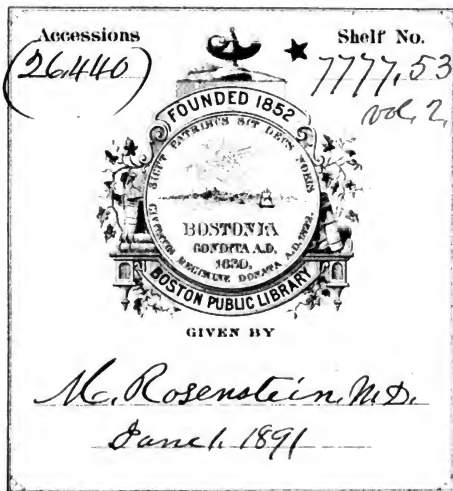 Accessions
(26,440)
Shelf No.
7777,53
vol. 2,
FOUNDED 1852
SICUT PATRIBUS SIT DEUS NOBIS
BOSTONIA
CONDITA A.D.
1630.
CIVITATIS REGIMINE DONATA A.D. 1822.
BOSTON PUBLIC LIBRARY
GIVEN BY
M. Rosenstein, M.D.
June 1. 1891